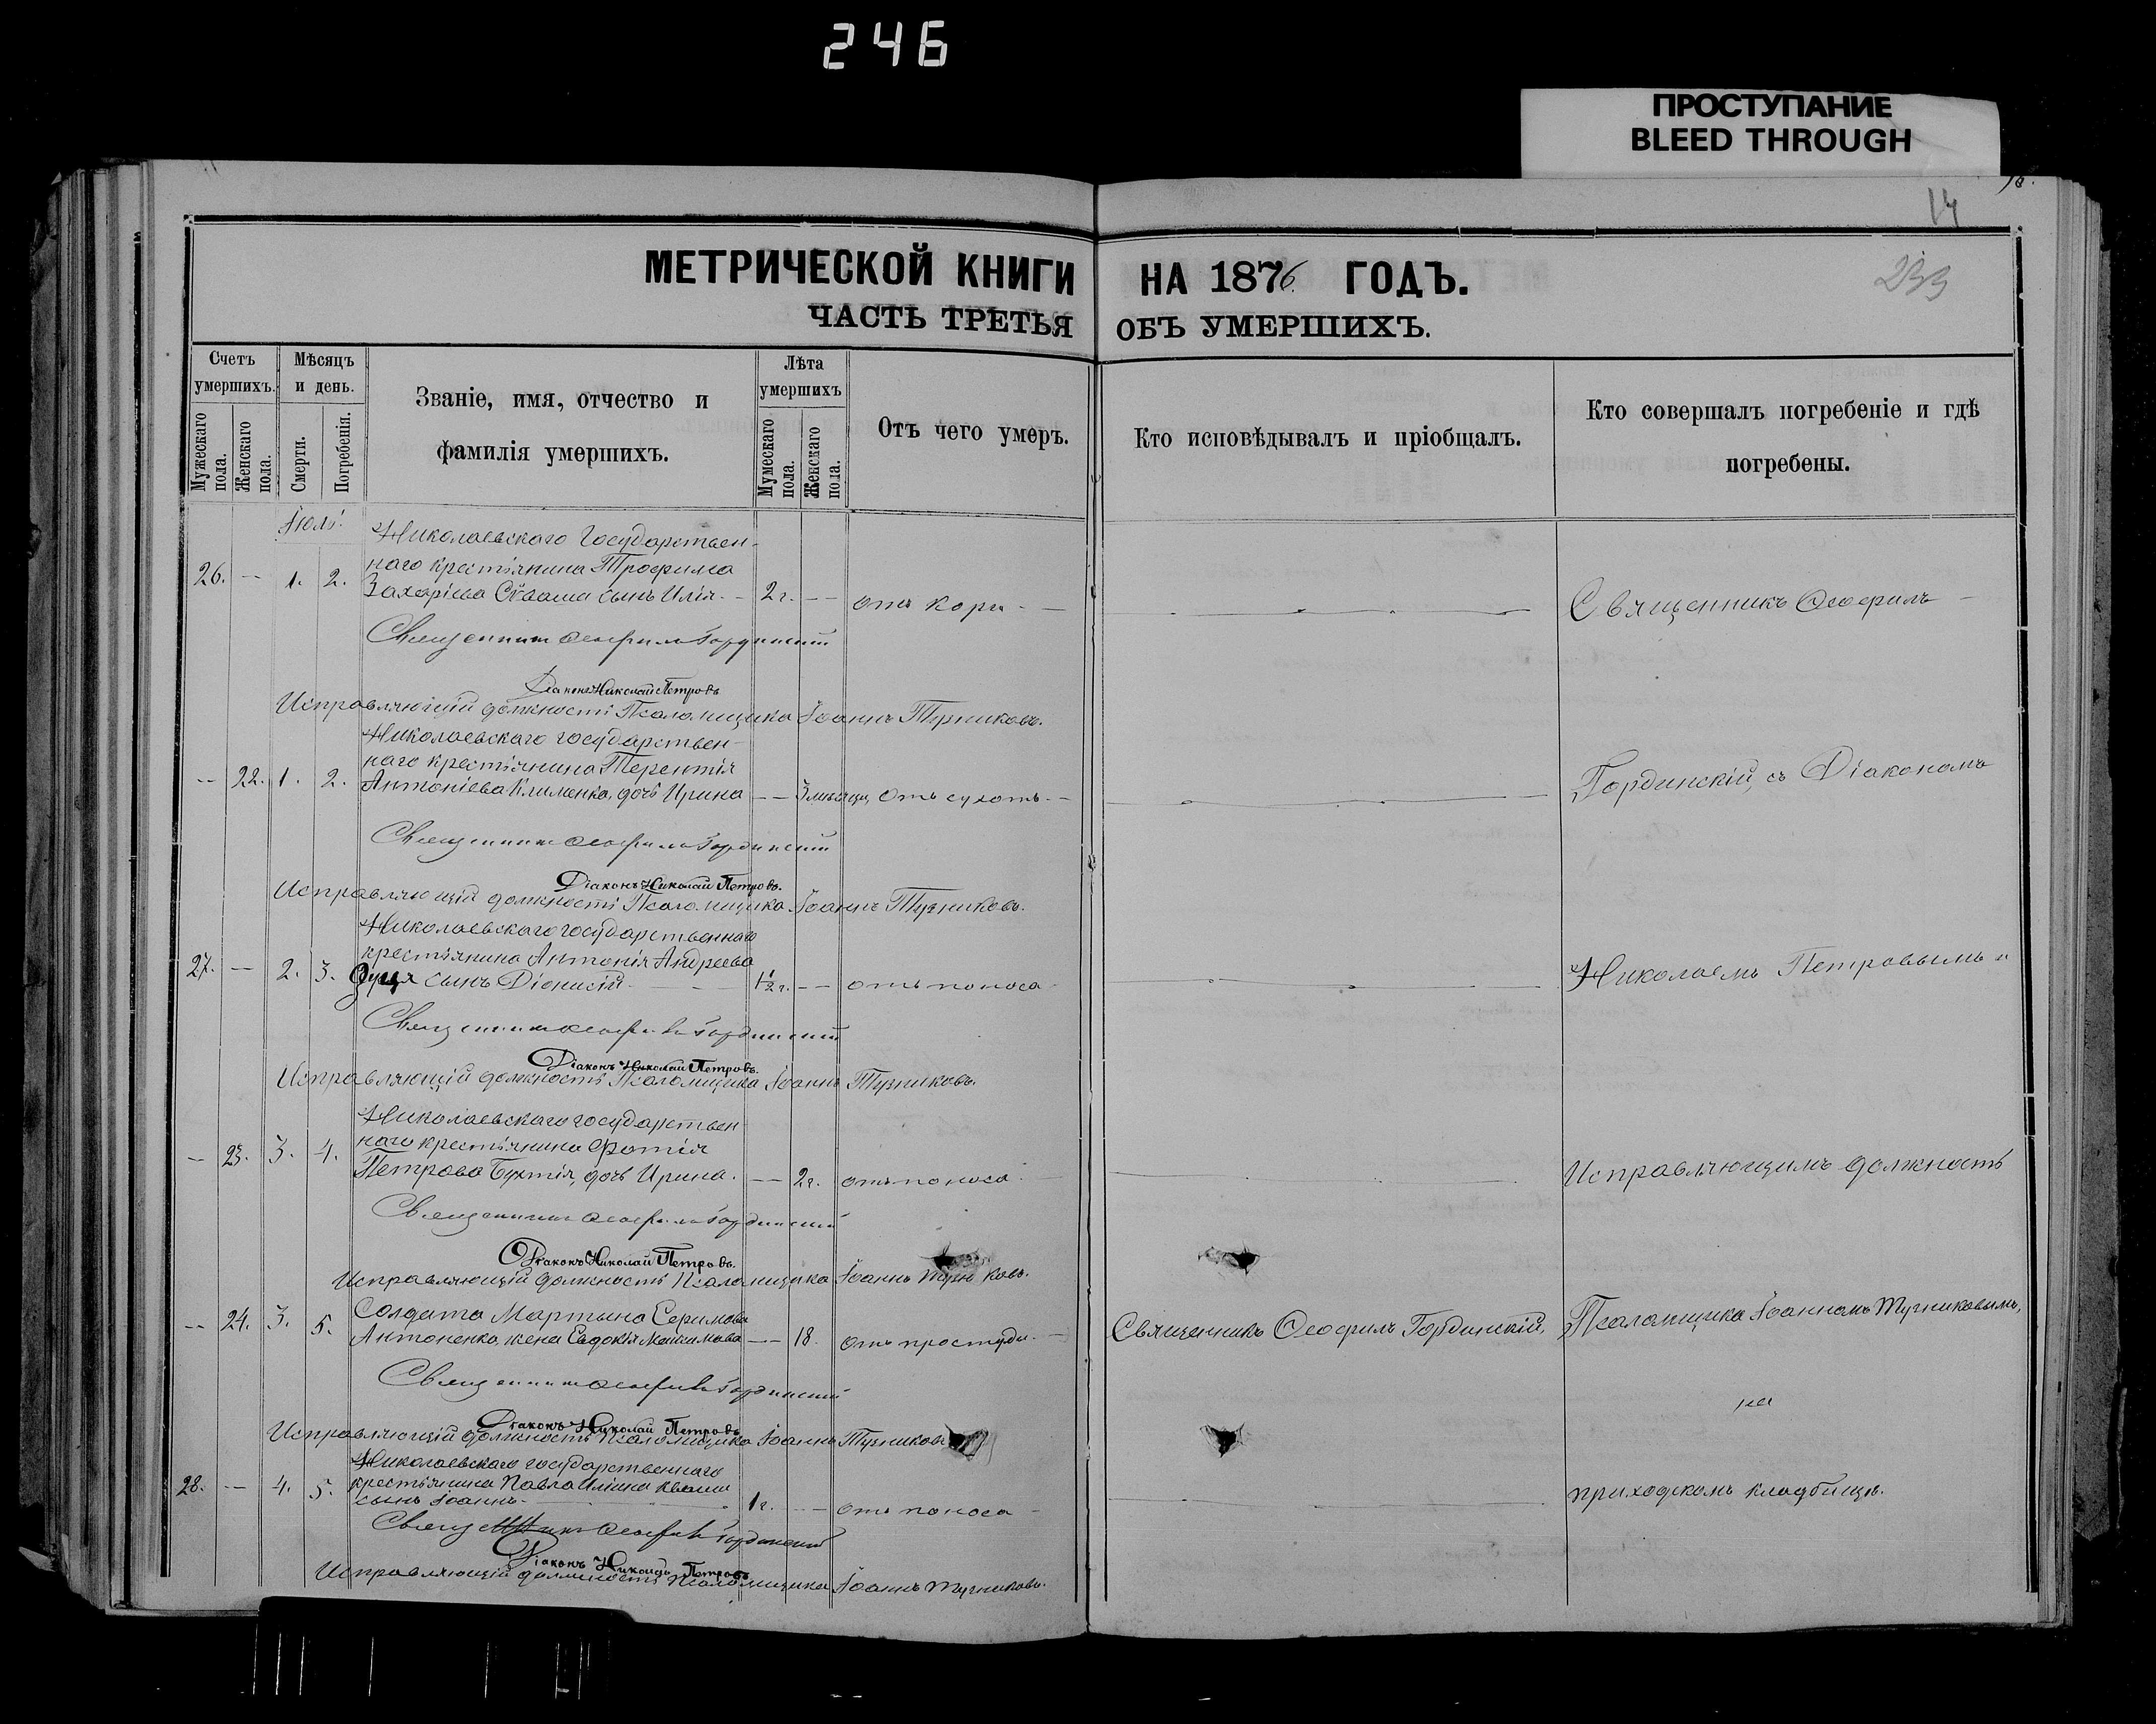 246
ПРОСТУПАНИЕ
BLEED THROUGH
14
233
МЕТРИЧЕСКОЙ КНИГИ НА 1876 ГОДЪ.
ЧАСТЬ ТРЕТЬЯ ОБЪ УМЕРШИХЪ.
Счетъ умершихъ.
Мужескаго пола.
Женскаго пола.
Мѣсяцъ и день.
Смерти.
Погребенія.
Званіе, имя, отчество и
фамилія умершихъ.
Лѣта умершихъ
Мумескаго пола.
Женскаго пола.
Отъ чего умеръ.
Кто исповѣдывалъ и пріобщалъ.
Кто совершалъ погребеніе и гдѣ
погребены.
Іюль.
Николаевскаго Государствен-
наго крестьянина Трофима
26. — 1. 2. Захаріева сынъ Илія. — 2 г. — — отъ кори — Священникъ Ѳеофилъ
Священникъ Ѳеофилъ Гординскій
Діаконъ Николай Петровъ
Исправляющій должность Псаломщика Іоаннъ Тучниковъ.
Николаевскаго государствен-
наго крестьянина Терентія
— 22. 1. 2. Антоніева Клименка, дочь Ирина — — 3 мѣсяца, отъ сухоть. — Гординскій, съ Діакономъ
Священникъ Ѳеофилъ Гординскій
Діаконъ Николай Петровъ.
Исправляющій должность Псаломщика Іоаннъ Тучниковъ.
Николаевскаго государственнаго
крестьянина Антонія Андреева
27. — 2. 3. сынъ Діонисій. — ½ г. — — отъ поноса — Николаемъ Петровымъ и
Священникъ Ѳеофилъ Гординскій
Діаконъ Николай Петровъ.
Исправляющій должность Псаломщика Іоаннъ Тучниковъ.
Николаевскаго государствен
наго крестьянина Фотія
— 23. 3. 4. Петрова Бухтія, дочь Ирина. — — 2 г. отъ поноса — Исправляющимъ должность
Священникъ Ѳеофилъ Гординскій
Діаконъ Николай Петровъ.
Исправляющій должность Псаломщика Іоаннъ
Солдата Мартына
— 24. 3. 5. Антоненко, жена Евдокія Максимова — — 18. отъ простуди. — Священникъ Ѳеофилъ Гординскій, Псаломщика Іоанномъ Тучниковымъ,
Священникъ Ѳеофилъ Гординскій
на
Діаконъ Николай Петровъ
Исправляющій должность Псаломщика Іоаннъ Тучниковъ
Николаевскаго государственнаго
крестьянина Павла Иліина Кваши
28. — 4. 5. сынъ Іоаннъ. — 1 г. — — отъ поноса — приходскомъ кладбищѣ.
Священникъ Ѳеофилъ Гординскій
Діаконъ Николай Петровъ
Исправляющій должность Псаломщика Іоаннъ Тучниковъ.